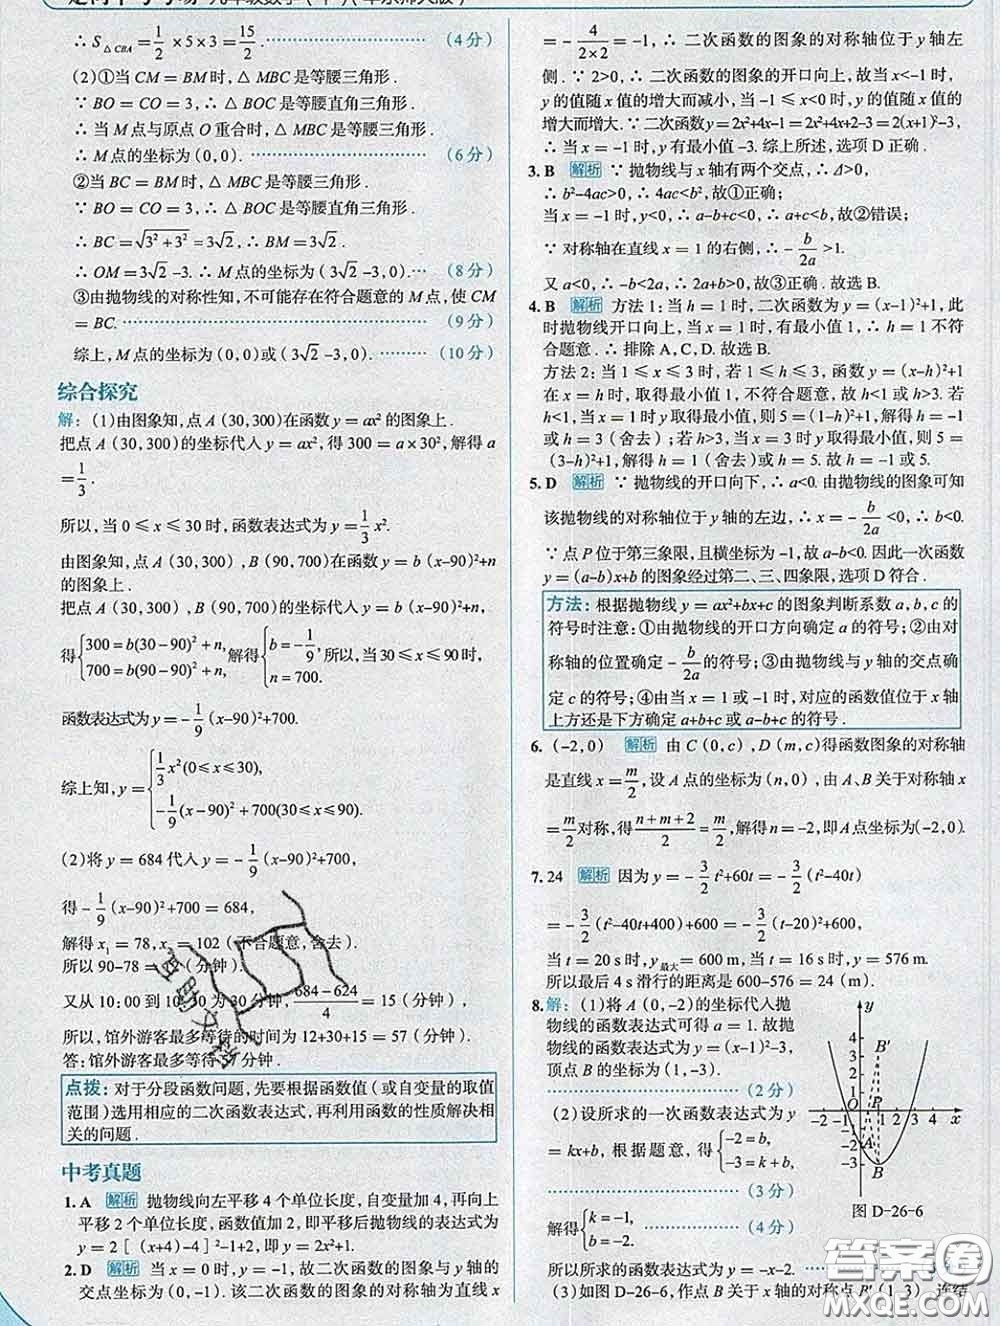 九年级数学(下)(华东师大版)
∴ S△CBA = 1/2 ×5×3 = 15/2 . ……(4分)
(2)①当 CM = BM 时,△MBC 是等腰三角形 .
∵ BO = CO = 3,∴ △BOC 是等腰直角三角形 .
∴ 当 M 点与原点 O 重合时,△MBC 是等腰三角形 .
∴ M 点的坐标为(0,0). ……(6分)
②当 BC = BM 时,△MBC 是等腰三角形 .
∵ BO = CO = 3,∴ △BOC 是等腰直角三角形 .
∴ BC = √(3²+3²) = 3√2 ,∴ BM = 3√2 .
∴ OM = 3√2 –3. ∴ M 点的坐标为(3√2 –3,0). …(8分)
③由抛物线的对称性知,不可能存在符合题意的 M 点,使 CM
= BC. ……(9分)
综上,M 点的坐标为(0,0)或(3√2 –3,0). ……(10分)
综合探究
解:(1)由图象知,点 A(30,300)在函数 y = ax² 的图象上 .
把点 A(30,300)的坐标代入 y = ax²,得 300 = a×30²,解得 a
= 1/3 .
所以,当 0 ≤ x ≤ 30 时,函数表达式为 y = 1/3 x².
由图象知,点 A(30,300),B(90,700)在函数 y = b(x–90)²+n
的图象上 .
把点 A(30,300),B(90,700)的坐标代入 y = b(x–90)²+n,
得 {300 = b(30–90)²+n, 700 = b(90–90)²+n, 解得 {b = –1/9, n = 700. 所以,当 30 ≤ x ≤ 90 时,
函数表达式为 y = –1/9 (x–90)²+700.
综上知,y = {1/3 x²(0≤x≤30), –1/9 (x–90)²+700(30≤x≤90).
(2)将 y = 684 代入 y = –1/9 (x–90)²+700,
得 –1/9 (x–90)²+700 = 684,
解得 x₁ = 78,x₂ = 102(不合题意,舍去).
所以 90–78 = (分钟).
又从 10:00 到 10:30 为 30 分钟, (684–624)/4 = 15(分钟),
所以,馆外游客最多等待的时间为 12+30+15 = 57(分钟).
答:馆外游客最多等待 57 分钟 .
点拨:对于分段函数问题,先要根据函数值(或自变量的取值
范围)选用相应的二次函数表达式,再利用函数的性质解决相
关的问题 .
中考真题
1. A 解析 抛物线向左平移 4 个单位长度,自变量加 4,再向上
平移 2 个单位长度,函数值加 2,即平移后抛物线的表达式为
y = 2[(x+4)–4]²–1+2,即 y = 2x²+1.
2. D 解析 当 x = 0 时,y = –1,故二次函数的图象与 y 轴的
交点坐标为(0,–1). 该二次函数的图象的对称轴为直线 x
= –4/(2×2) = –1,∴ 二次函数的图象的对称轴位于 y 轴左
侧 . ∵ 2>0,∴ 二次函数的图象的开口向上,故当 x<–1 时,
y 的值随 x 值的增大而减小,当 –1 ≤ x<0 时,y 的值随 x 值的
增大而增大. ∵ 二次函数 y = 2x²+4x–1 = 2x²+4x+2–3 = 2(x+1)²–3,
∴ 当 x = –1 时,y 有最小值 –3. 综上所述,选项 D 正确 .
3. B 解析 ∵ 抛物线与 x 轴有两个交点,∴ Δ>0,
∴ b²–4ac>0,∴ 4ac<b²,故①正确;
当 x = –1 时,y<0,∴ a–b+c<0,∴ a+c<b,故②错误;
∵ 对称轴在直线 x = 1 的右侧,∴ –b/2a >1.
又 a<0,∴ –b<2a,∴ 2a+b>0,故③正确 . 故选 B.
4. B 解析 方法 1:当 h = 1 时,二次函数为 y = (x–1)²+1,此
时抛物线开口向上,当 x = 1 时,有最小值 1,∴ h = 1 不符
合题意 . ∴ 排除 A,C,D. 故选 B.
方法 2:当 1 ≤ x ≤ 3 时,若 1 ≤ h ≤ 3,函数 y = (x–h)²+1
在 x = h 时,取得最小值 1,不符合题意,故 h<1 或 h>3. 若
h<1,当 x = 1 时 y 取得最小值,则 5 = (1–h)²+1,解得 h = –1
或 h = 3(舍去);若 h>3,当 x = 3 时 y 取得最小值,则 5 =
(3–h)²+1,解得 h = 1(舍去)或 h = 5. 故 h = –1 或 5.
5. D 解析 ∵ 抛物线的开口向下,∴ a<0. 由抛物线的图象可知
该抛物线的对称轴位于 y 轴的左边,∴ x = –b/2a <0,∴ b<0.
∵ 点 P 位于第三象限,且横坐标为 –1,故 a–b<0. 因此一次函数
y = (a–b)x+b 的图象经过第二、三、四象限,选项 D 符合 .
方法:根据抛物线 y = ax²+bx+c 的图象判断系数 a,b,c 的
符号时注意:①由抛物线的开口方向确定 a 的符号;②由对
称轴的位置确定 –b/2a 的符号;③由抛物线与 y 轴的交点确
定 c 的符号;④由当 x = 1 或 –1 时,对应的函数值位于 x 轴
上方还是下方确定 a+b+c 或 a–b+c 的符号 .
6. (–2,0) 解析 由 C(0,c),D(m,c)得函数图象的对称轴
是直线 x = m/2,设 A 点的坐标为(n,0),由 A、B 关于对称轴 x
= m/2 对称,得 (n+m+2)/2 = m/2,解得 n = –2,即 A 点坐标为(–2,0).
7. 24 解析 因为 y = –3/2 t²+60t = –3/2 (t²–40t)
= –3/2 (t²–40t+400)+600 = –3/2 (t–20)²+600,
当 t = 20 s 时,y最大 = 600 m,当 t = 16 s 时,y = 576 m.
所以最后 4 s 滑行的距离是 600–576 = 24(m).
8. 解:(1)将 A(0,–2)的坐标代入抛
物线的函数表达式可得 a = 1. 故抛
物线的函数表达式为 y = (x–1)²–3,
顶点 B 的坐标为(1,–3).
……(2分)
(2)设所求的一次函数表达式为 y
= kx+b,根据题意,得 {–2 = b, –3 = k+b,
……(3分)
解得 {k = –1, b = –2. ……(4分)
y
4
3
2
1
B′
–2 –1 O P 1 2 3 4 x
–1
A
–3
B
图 D-26-6
所以所求的函数表达式为 y = –x–2.
(3)如图 D-26-6,作点 B 关于 x 轴的对称点 B′(1,3),连结
答案圈
MXQE.COM